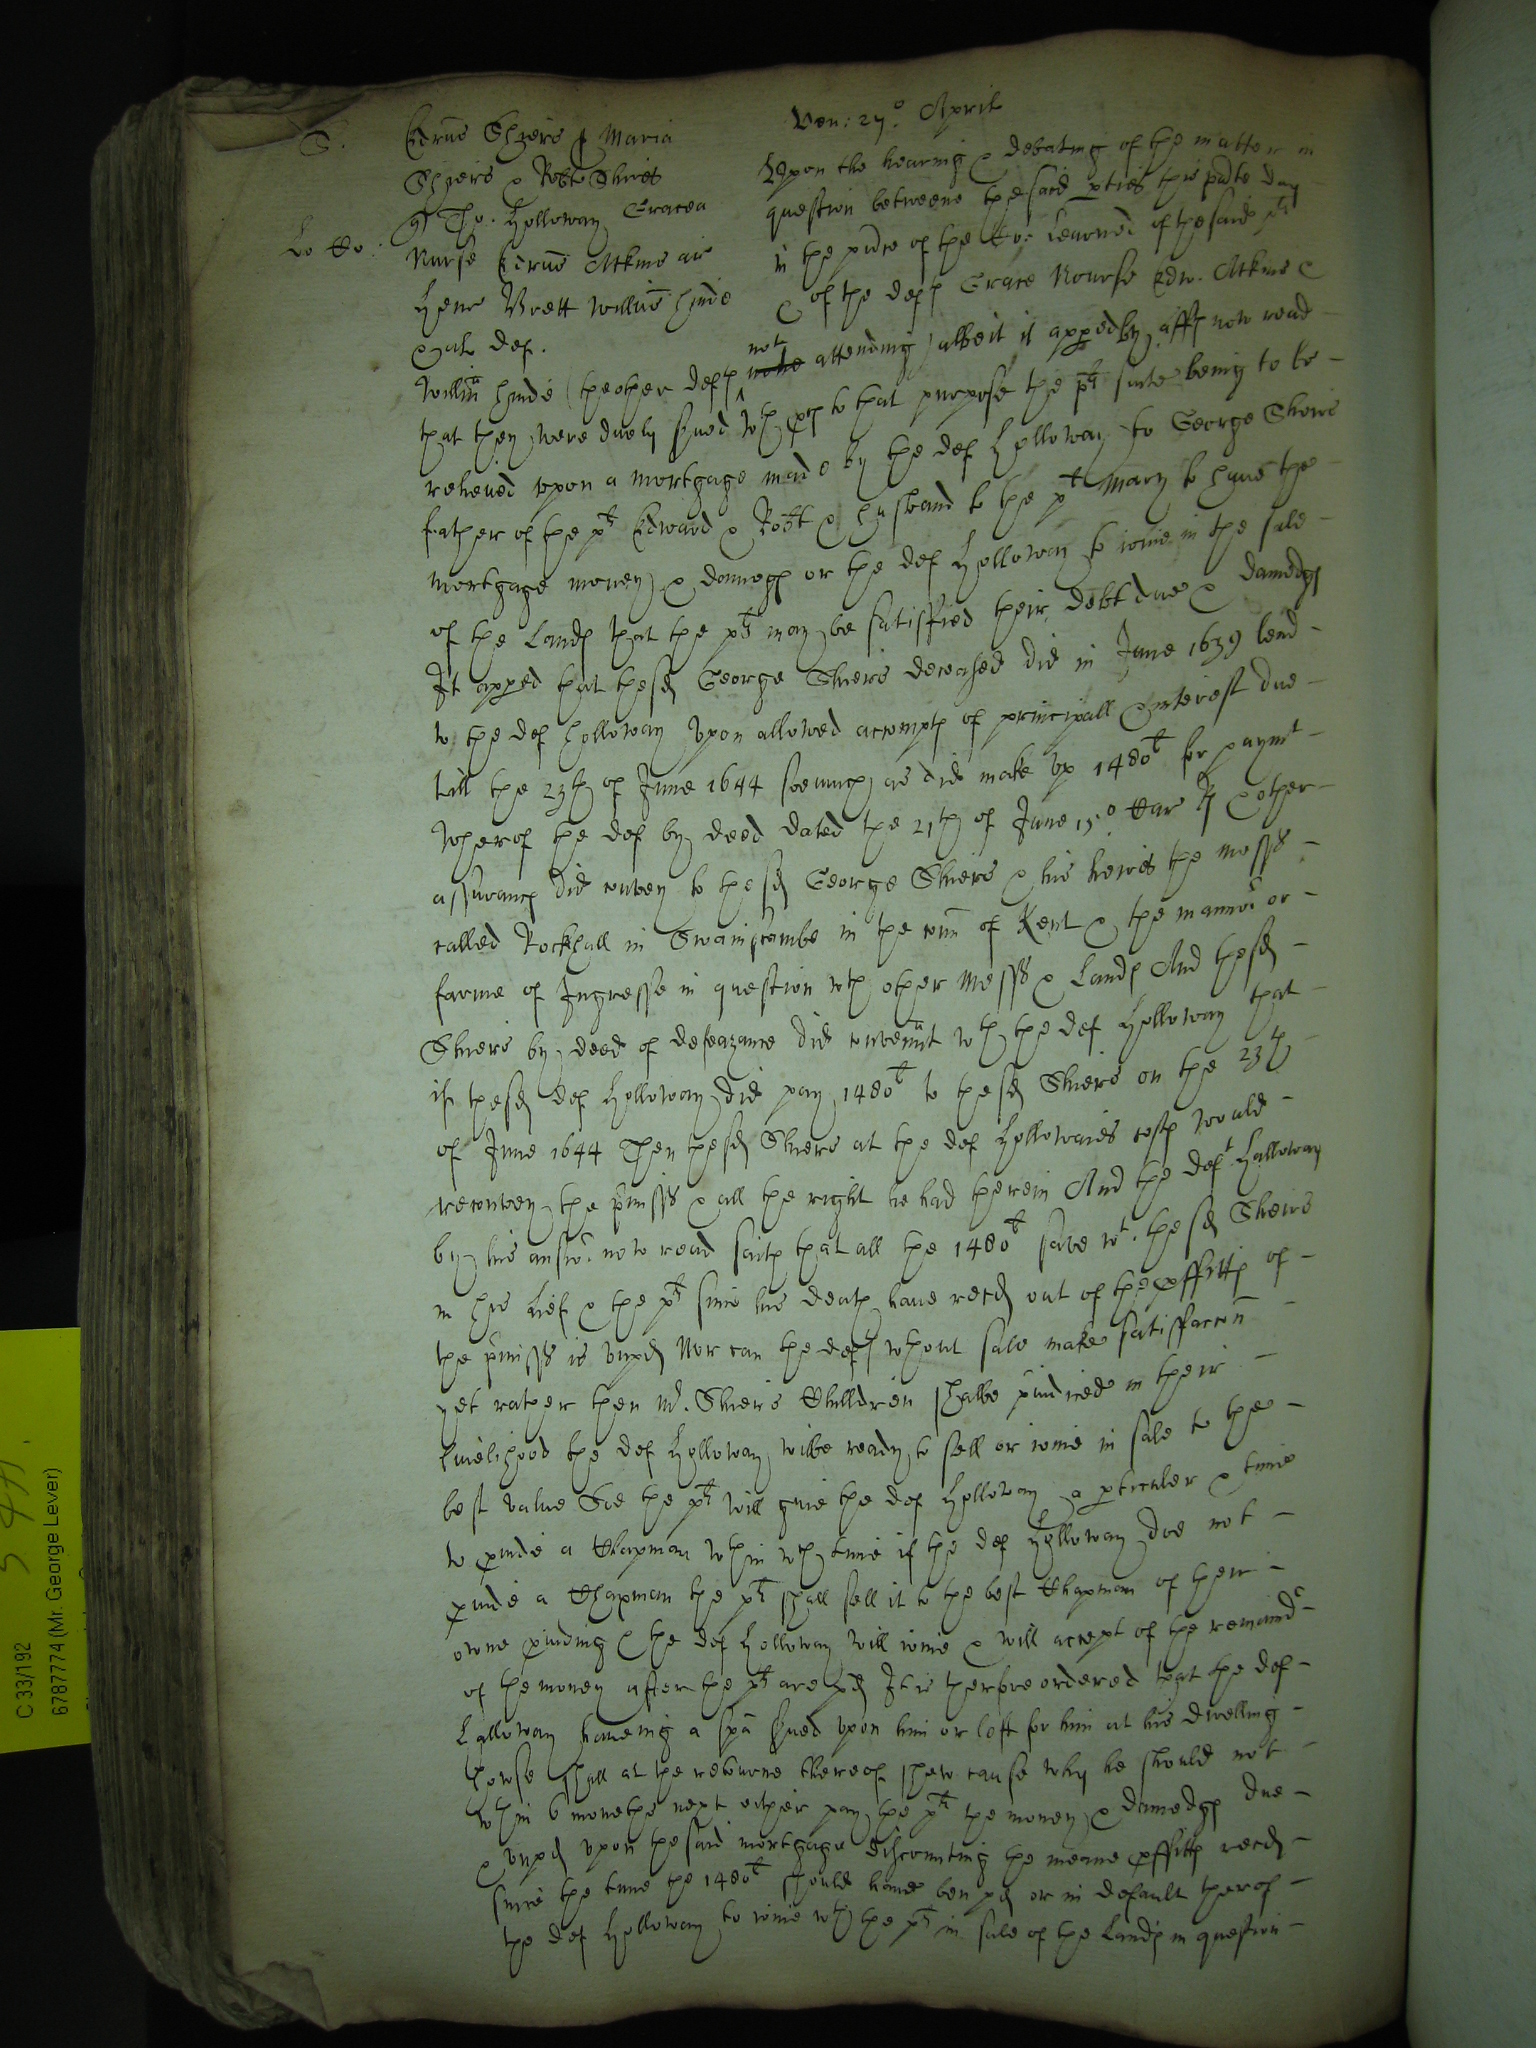 Ven: 27º April
S. Edrus Shzeirs & Maria
Shzeirs & Robte Shiers
qs Tho. Holloway Gracea
Lo Co: Nurse Edrus Atkins ar
Henr Brett Willus Hinde
& al def.
Upon the hearing & debating of the matter in
question betweene the said pties this pnte day
in the pnce of the Co: learned of the said pts
& of the defts Grace Nourse Edw. Atkins &
Willm Hinde (the other defts none not attending) albeit it apped by affts now read
that they were duely sved wth pcs to that purpose the pts suite being to be
releived vpon a mortgage made by the def Holloway to George Sheirs
father of the pts Edward & Robt & husband to the pt Mary to haue the
mortgage money & damags or the def Holloway to ioine in the sale
of the Lands that the pts may be satisfied their debt due & damedgs
It apped that the sd George Shiers deceased did in June 1639 lend
to the def Holloway vpon allowed accompts of principall & interest due
till the 23th of June 1644 soe much as did make vp 1480l for paymt
wherof the def by deed dated the 21th of June 15º Car Rs & other
assurancs did convey to the sd George Shiers & his heires the mess
called Rockhall in Swainscombe in the com of Kent & the mannor or
farme of Ingresse in question wth other mess & Lands And the sd
Shiers by deed of defeazance did covennt wth the def Holloway that
if the sd def Holloway did pay 1480l to the sd Shiers on the 23th
of June 1644 Then the sd Shiers at the def Hollowaies costs would
reconvey the pmisss & all the right he had therein And the deft Holloway
by his answr now read saith that all the 1480l save wt the sd Sheirs
in his lief & the pts since his death haue recd out of the pffitts of
the pmisss is vnpd Nor can the deft wthout sale make satisfaccon
yet rather then Mr. Shiers Children shalbe piudiced in their
livelihood the def Holloway wilbe ready to sell or ioine in sale to the
best value Soe the pts will give the def Holloway a pticuler & time
to pvide a Chapman wthin wch time if the def Holloway doe not
pvide a Chapman the pts shall sell it to the best Chapman of their
owne pviding & the def Holloway will ioine & will accept of the remaindr
of the money after the pts are pd It is therfore ordered that the def
Holloway haveing a spa sved vpon him or left for him at his dwelling
howse shall at the retourne thereof shew cause why he should not
wthin 6 moneths next either pay the pts the money & damedgs due
& vnpd vpon the said mortgage discounting the meane pffitts recd
since the time the 1480l should haue ben pd or in default therof
the def Holloway to ioine wth the pts in sale of the Lands in question
C 33/192
6787774 (Mr. George Lever)